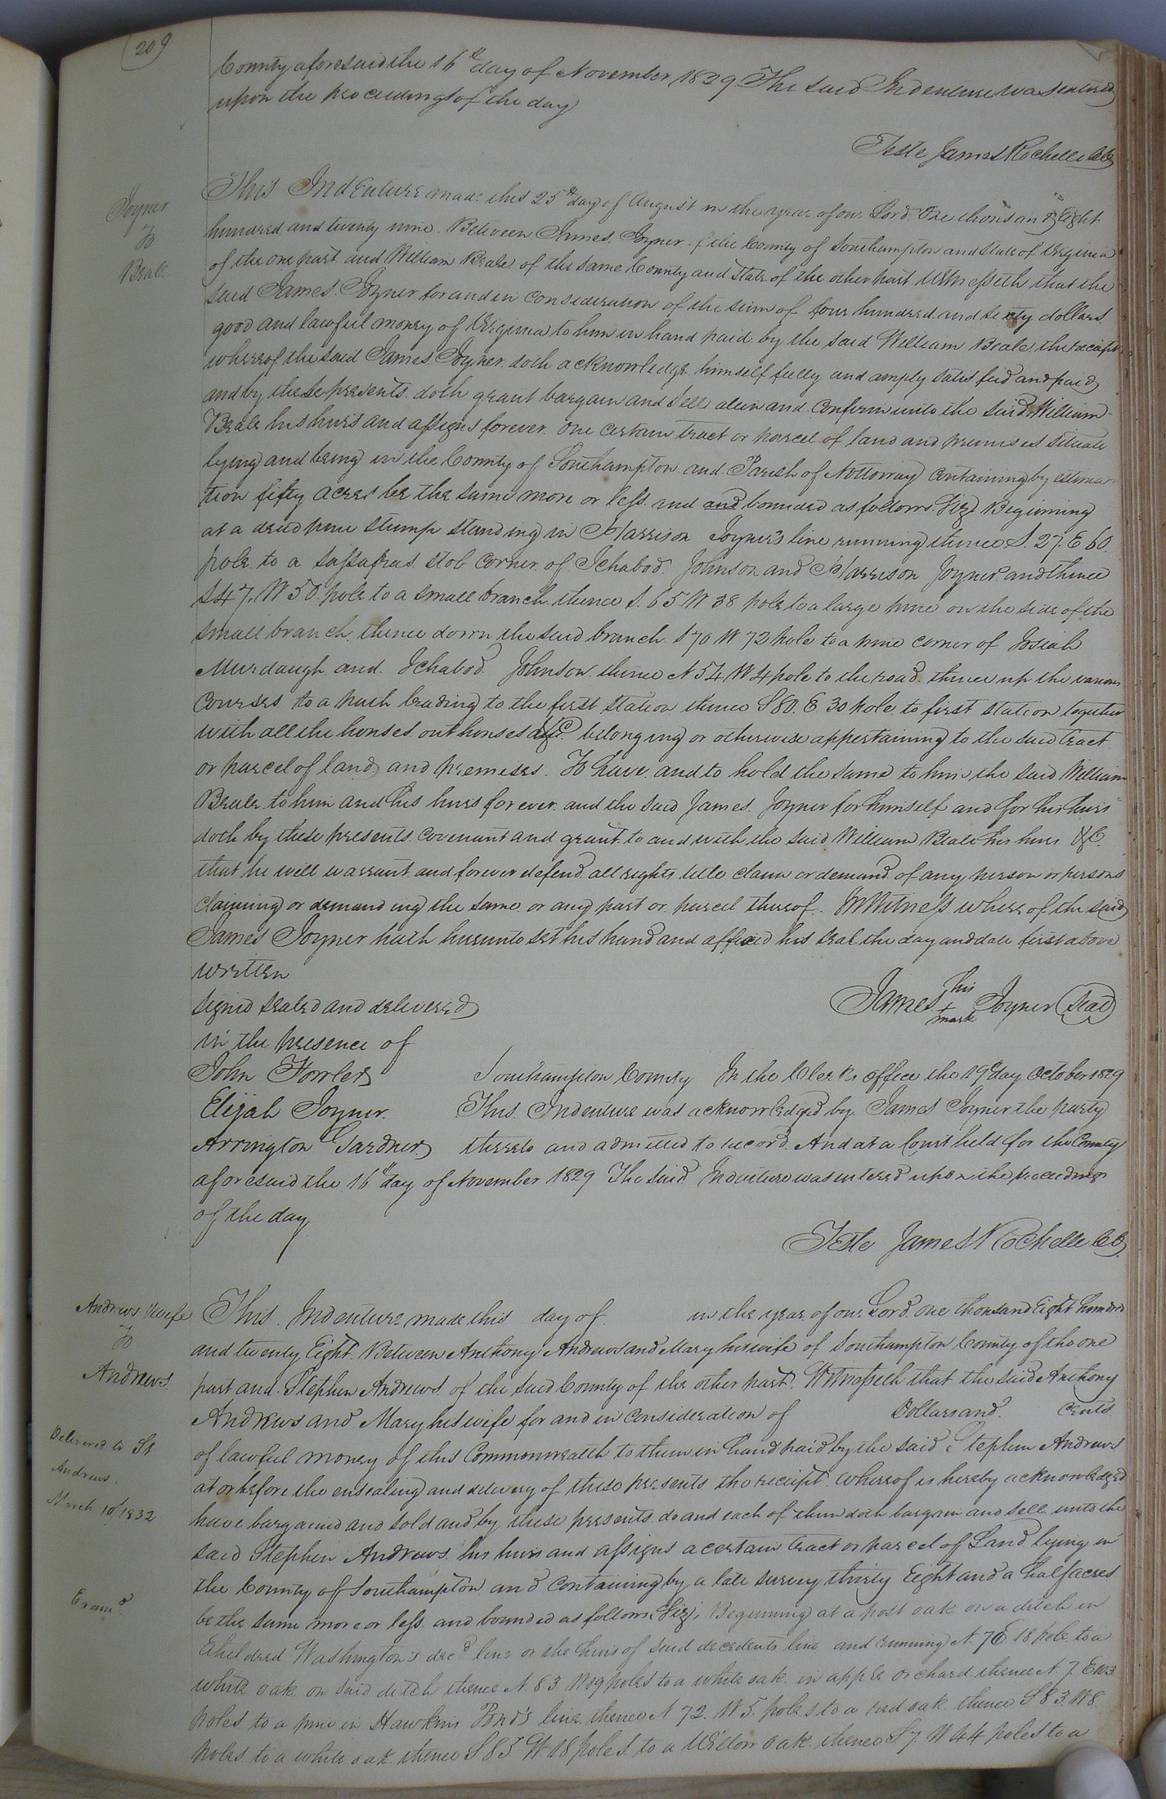 209
County aforesaid the 16th day of November 1829 The said Indenture was entered
upon the proceedings of the day
Teste James Rochelle CC
Joyner
To
Beale
This Indenture made this 25th day of August in the year of our Lord One thousand Eight
hundred and twenty nine. Between James Joyner of the County of Southampton and State of Virginia
of the one part and William Beale of the same County and State of the other part Witnesseth that the
said James Joyner for and in consideration of the sum of four hundred and sixty dollars
good and lawful money of Virginia to him in hand paid by the said William Beale the receipt
whereof the said James Joyner doth acknowledge himself fully and amply satisfied and paid
and by these presents doth grant bargain and sell alien and confirm unto the said William
Beale his heirs and assigns forever. One certain tract or parcel of land and premises situate
lying and being in the County of Southampton and Parish of Nottoway containing by estima-
tion fifty acres be the same more or less and and bounded as follows. Viz Beginning
at a dead pine stump standing in Harrison Joyner's line running thence S. 27. E 60
pole to a sassafras stob corner of Ichabod Johnson and Harrison Joyner. and thence
S 47. W 50. pole to a small branch thence S. 65 W 38 pole to a large pine on the side of the
small branch, thence down the said branch S 70 W 72 pole to a pine corner of Josiah
Murdaugh and Ichabod Johnson thence N 54 W 4 pole to the road. thence up the various
courses to a path leading to the first station thence S 80. E 30 pole to first station together
with all the houses outhouses &c belonging or otherwise appertaining to the said tract
or parcel of land and premises. To have and to hold the same to him the said William
Beale to him and his heirs forever. and the said James Joyner for himself and for his heirs
doth by these presents covenant and grant to and with the said William Beale his heirs &C.
that he will warrant and forever defend all rights title claim or demand of any person or persons
claiming or demanding the same or any part or parcel thereof. In Witness whereof the said
James Joyner hath hereunto set his hand and affixed his seal the day and date first above
written
Signed sealed and delivered
in the presence of
James his + mark Joyner (Seal)
John Fowler
Elijah Joyner.
Arrington Gardner
Southampton County In the Clerk's office the 19th day October 1829
This Indenture was acknowledged by James Joyner the party
thereto and admitted to record. And at a Court held for the County
aforesaid the 16th day of November 1829 The said Indenture was entered upon the proceedings
of the day
Teste James Rochelle CC
Andrews & wife
To
Andrews.
Delivered to St
Andrews.
March 10th 1832
Exam'd
This Indenture made this day of in the year of our Lord one thousand Eight hundred
and twenty Eight. Between Anthony Andrews and Mary his wife of Southampton County of the one
part and Stephen Andrews of the said County of the other part. Witnesseth that the said Anthony
Andrews and Mary his wife for and in consideration of Dollars and Cents
of lawful money of this Commonwealth to them in hand paid by the said Stephen Andrews
at or before the ensealing and delivery of these presents the receipt whereof is hereby acknowledged
have bargained and sold and by these presents do and each of them doth bargain and sell unto the
said Stephen Andrews his heirs and assigns a certain tract or parcel of Land lying in
the County of Southampton and containing by a late survey thirty Eight and a half acres
be the same more or less and bounded as follows (Viz) Beginning at a post oak on a ditch in
Etheldred Washington's decd line or the heirs of said decedents line and running N. 7 E. 18 pole to a
white oak on said ditch thence N. 83 W 09 poles to a white oak in apple orchard thence N. 7 E
poles to a pine in Hawkins Pond's line thence N 72. W 5. poles to a red oak thence S 83 W 8
poles to a white oak thence S 85 W 18 poles to a Willow oak thence S 7. W 44 poles to a